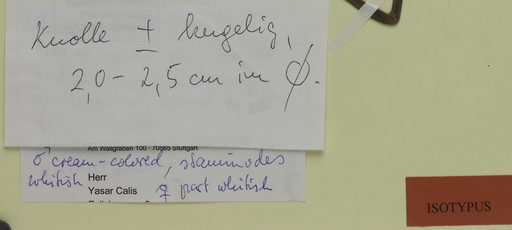 Knolle ± kugelig,
2,0 - 2,5 cm im Ø.
Am Wallgraben 100 · 70565 Stuttgart
♂ cream-colored, staminodes
whitish Herr
Yasar Calis ♀ part whitish
ISOTYPUS